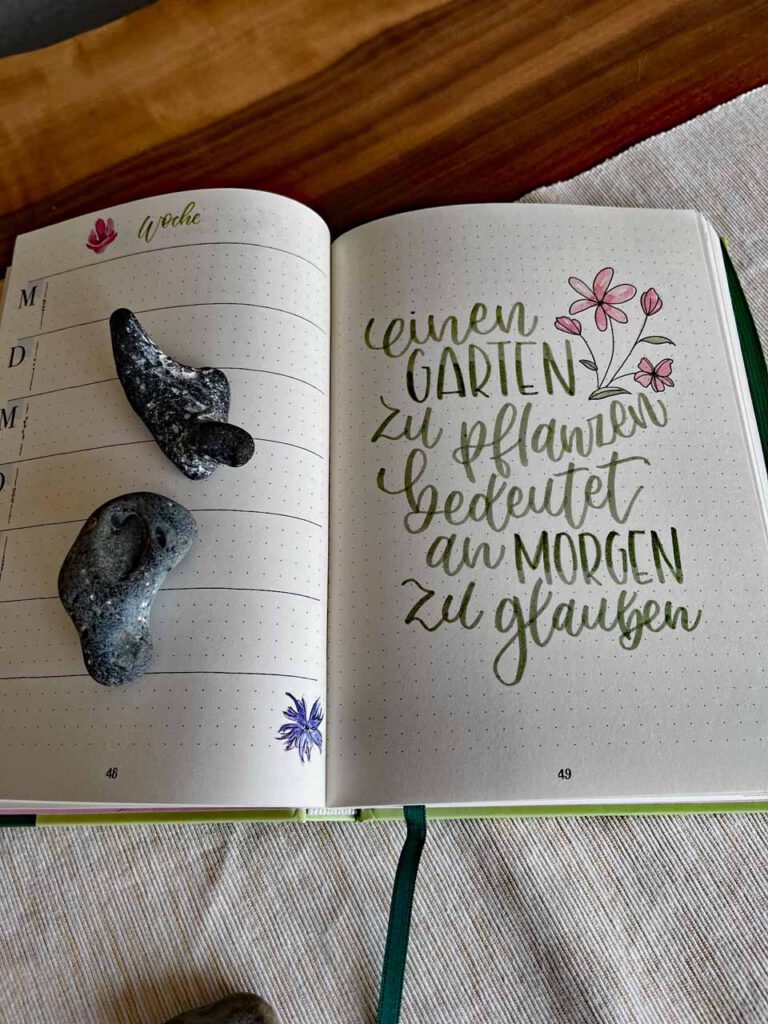 Woche
M
D
M
D
48
einen
GARTEN
zu pflanzen
bedeutet
an MORGEN
zu glauben
49